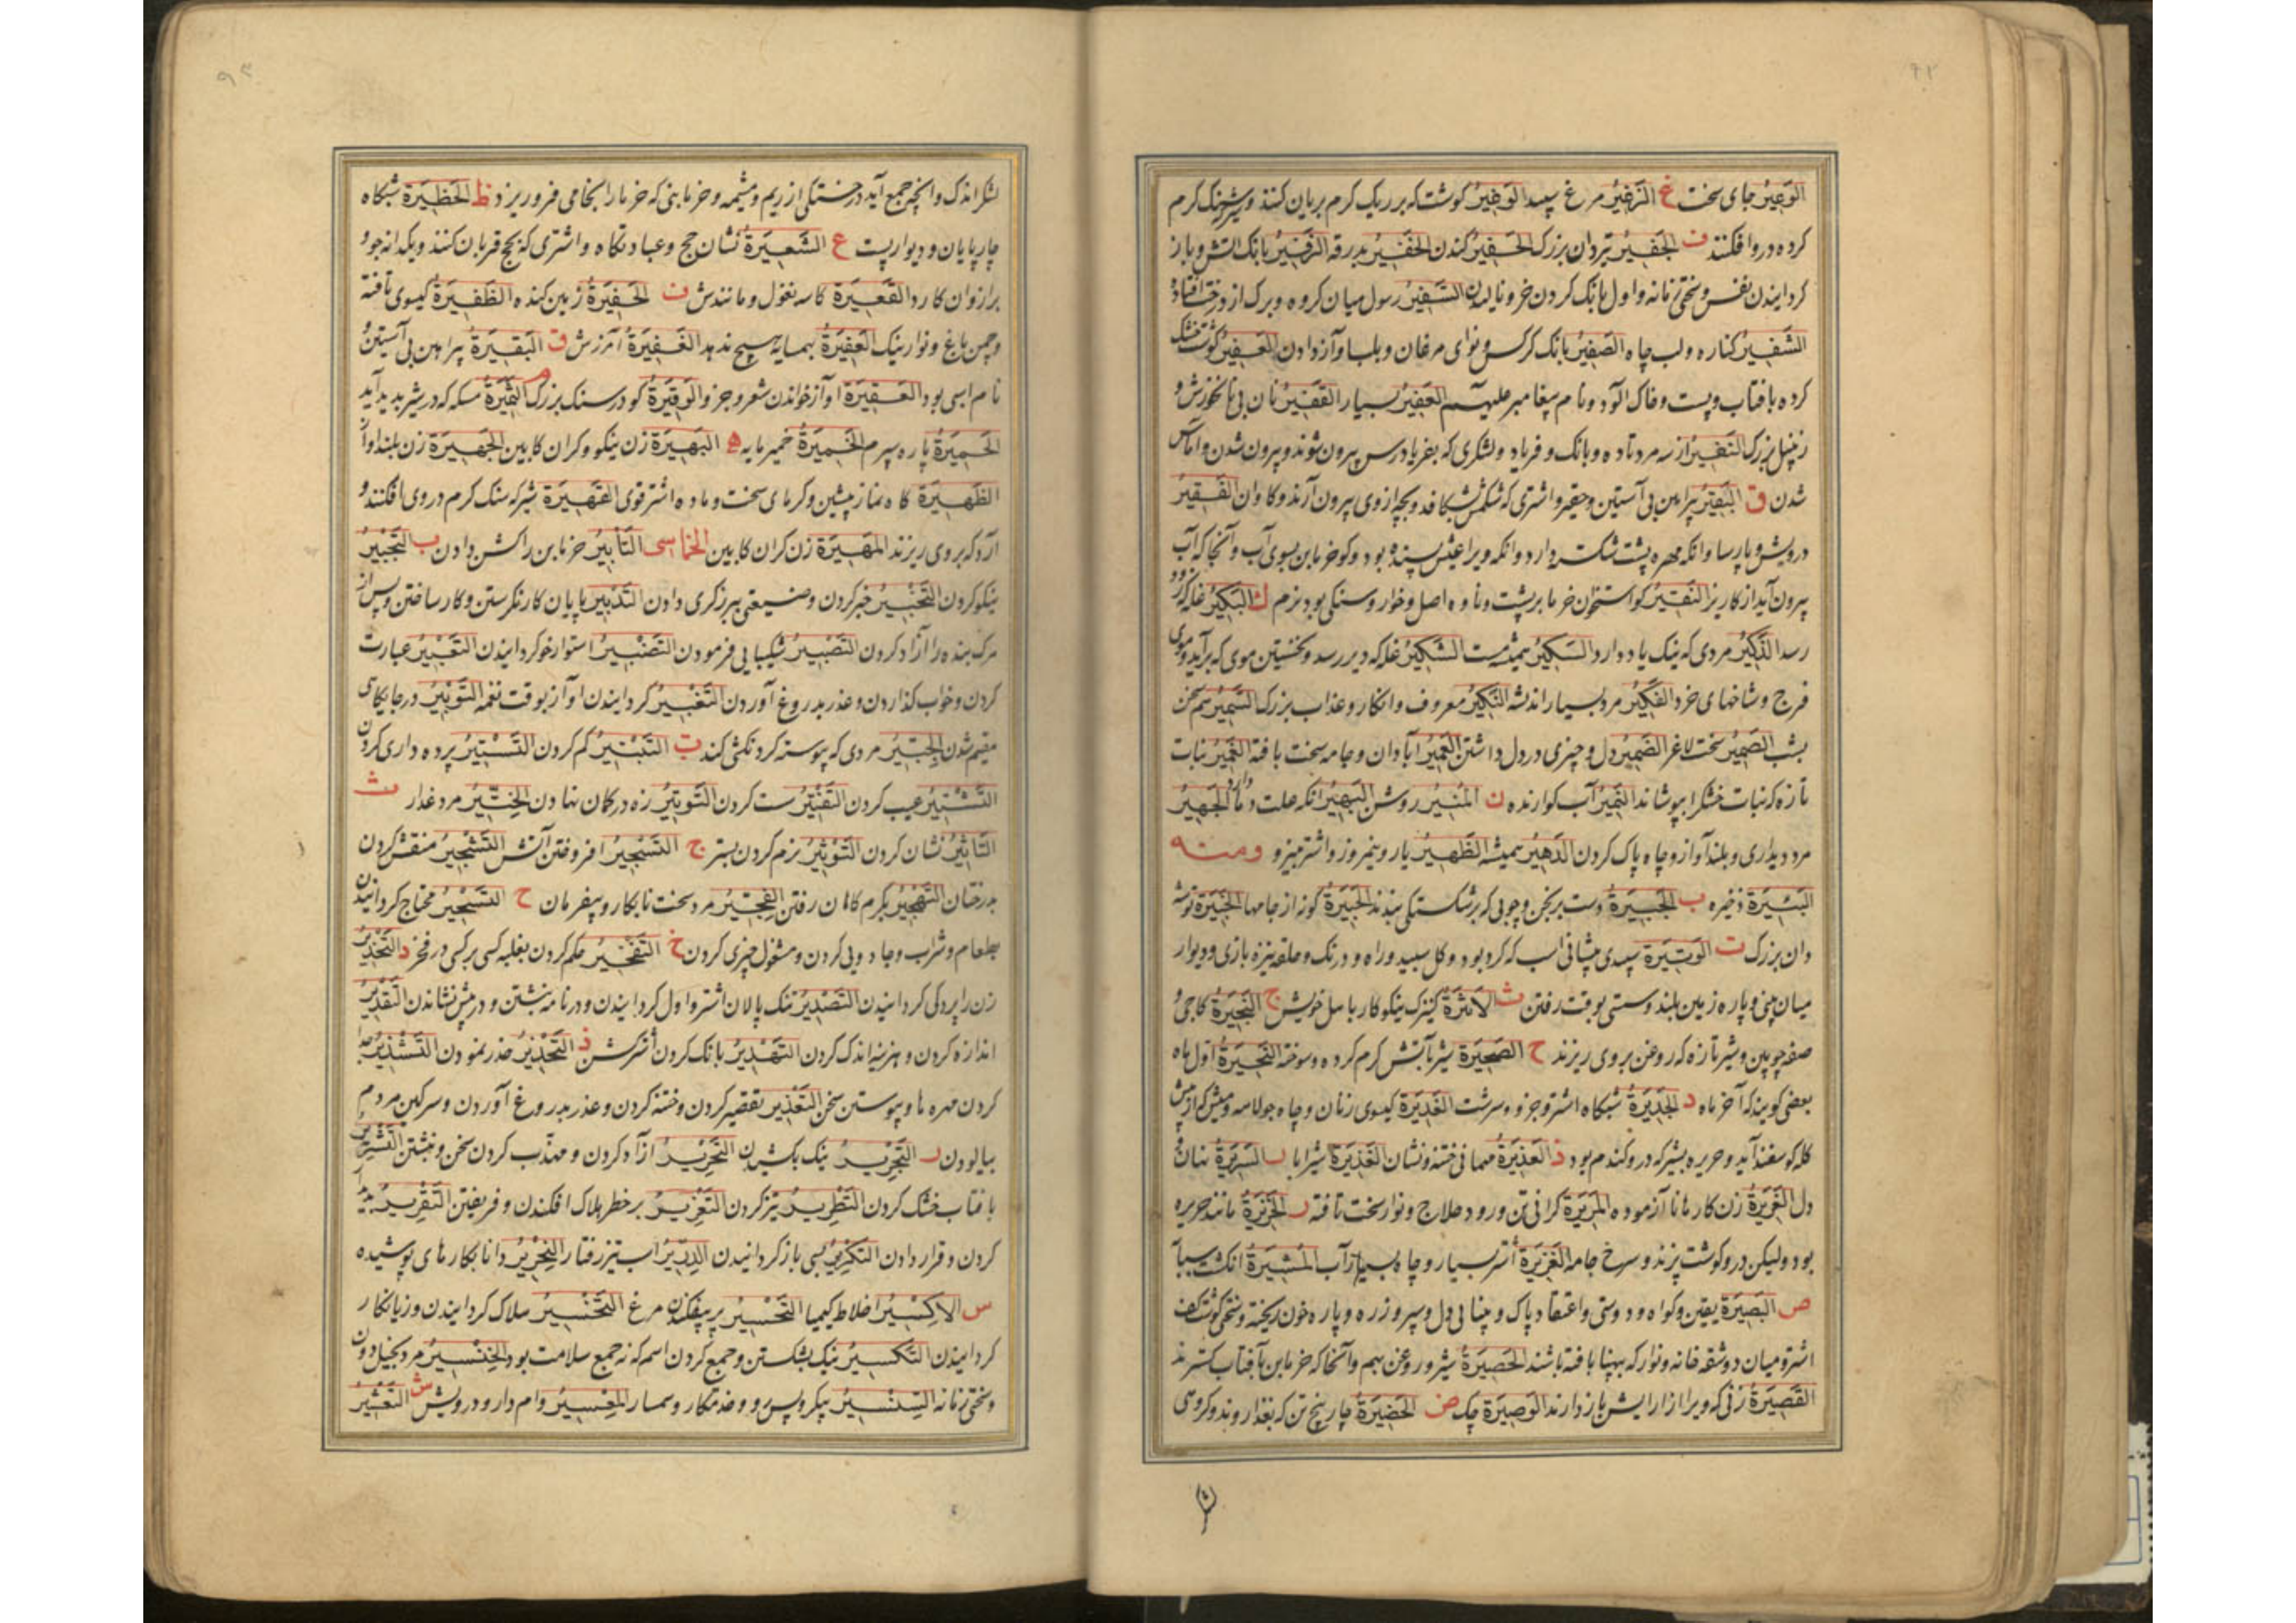 ٩٢
الوَعِيْرُ جای سخت غ الزَغِيْرُ مرغ سپید الوَغِيْرُ کوشت که بر ریک کرم بریان کنند و شیر سنک کرم
کرده درو افکنند ف الجَفِيْرُ تیردان بزرک الحَفِيْرُ کندن الخَفِيْرُ بدرقه الزَفِيْرُ بانک آتش و باز
کردانیدن نفس و سختی زمانه و اول بانک کردن خر و نالیدن السَّفِيْرُ رسول میان کروه و برک از درخت افتاده
الشَّفِيْرُ کناره و لب چاه الصَفِيْرُ بانک کرکس و نوای مرغان و بلبل و آواز دادن العَفِيْرُ کوشت خشک
کرده بآفتاب و پست و خاک آلود و نام پیغامبر علیهم الغَفِيْرُ بسیار القَفِيْرُ نان بی نانخورش و
زنبیل بزرک النَفِيْرُ از سه مرد تا ده و بانک و فریاد و لشکری که بفریاد رس بیرون شوند و بیرون شدن و آماس
شدن ق البَقِيْرُ پیراهن بی آستین و حقیر و اشتری که شکمش بشکافد و بچه از وی بیرون آرند و کاوان الفَقِيْرُ
درویش و پارسا و انکه مهره پشت شکسته دارد و انکه ویرا عیش بسنده بود و کو خرمابن بسوی آب و آنجا که آب
بیرون آید از کاریز النَقِيْرُ کو استخوان خرما بر پشت و ناوه اصل و خوار و سنکی بود نرم ك البَكِيْرُ غله که زود
رسد الذَّكِيْرُ مردی که نیک یاد دارد السَكِيْرُ همیشه مست الشَكِيْرُ غله که دیر رسد و نخستین موی که برآید و موی
فرج و شاخهای خرد الفَكِيْرُ مرد بسیار اندیشه النَكِيْرُ معروف و انکار و عذاب بزرک السَّمِيْرُ هم سخن
بشب الضَمِيْرُ سخت لاغر الضَمِيْرُ دل و چیزی در دل داشتن العَمِيْرُ آبادان و جامه سخت بافته الغَمِيْرُ نبات
تازه که نبات خشک را بپوشاند النَمِيْرُ آب کوارنده ن المُنِيْرُ روشن البَهِيْرُ انکه علت دمه دارد الجَهِيْرُ
مرد دیداری و بلند آواز و چاه پاک کردن الدَهِيْرُ همیشه الظَهِيْرُ یار و نیمروز و اشتر نیرو ومنه
البَئِيْرَةُ ذخیره ب الجَبِيْرَةُ دست برنجن و چوبی که بر شکستکی بندند الحَبِيْرَةُ کونه از جامها الخَبِيْرَةُ توشه
دان بزرک ت الوَتِيْرَةُ سپیدی پیشانی اسب که کرد بود و کل سپید و راه و درنک و حلقه نیزه بازی و دیوار
میان بینی و پاره زمین بلند و سستی بوقت رفتن ث الاَثِيْرَةُ کنیزک نیکو کار باصل خویش ج النَّجِيْرَةُ کاچی و
صفه چوبین و شیر تازه که روغن بروی ریزند ح الصَحِيْرَةُ شیر بآتش کرم کرده و سوخته النَّحِيْرَةُ اول ماه
بعضی کویند که آخر ماه د الجَدِيْرَةُ شبکاه اشتر و جز و سرشت الغَدِيْرَةُ کیسوی زنان و چاه جولاهه و میش که از پیش
کله کوسفند آید و حریره بشیر که درو کندم بود ذ العَذِيْرَةُ مهمانی ختنه و نشان الغَذِيْرَةُ شیر ابا ر السَرِيْرَةُ نهان
دل الغَرِيْرَةُ زن کارها نا آزموده المَرِيْرَةُ کرانی تن و رود حلاج و نوار سخت تافته ز الخَزِيْرَةُ مانند حریره
بود ولیکن درو کوشت پزند و سرخ جامه الغَزِيْرَةُ اشتر بسیار و چاه بسیار آب المُشِيْرَةُ انکشت سبابه
ص البَصِيْرَةُ یقین و کواه و دوستی و اعتقاد پاک و بینایی دل و سپر و زره و پاره خون ریخته و سختی کوشت کف
اشتر و میان دو شقه خانه و نوار که بپهنا بافته باشند الحَصِيْرَةُ شیر و روغن بهم و آنجا که خرمابن بآفتاب کسترند
القَصِيْرَةُ زنی که ویرا از آرایش باز دارند الوَصِيْرَةُ چک ض الحَضِيْرَةُ چار پنج تن که بغزا روند و کروهی
٩٣
لشکر اندک و انچه جمع آید در خستکی از ریم و مشیمه و خرمابنی که خرما را بخامی فرو ریزد ظ الحَظِيْرَةُ شبکاه
چارپایان و دیوار پست ع الشَّعِيْرَةُ نشان حج و عبادتکاه و اشتری که بحج قربان کنند و یکدانه جو و
برازوان کارد القَعِيْرَةُ کاسه نغول و مانندش ف الحَفِيْرَةُ زمین کنده الظَفِيْرَةُ کیسوی تافته
و چمن باغ و نوار نیک العَفِيْرَةُ بهمسایه هیچ ندهد الغَفِيْرَةُ آمرزش ق البَقِيْرَةُ پیراهن بی آستین و
نام اسبی بود العَقِيْرَةُ آواز خواندن شعر و جز و الوَقِيْرَةُ کو در سنک بزرک م الثَمِيْرَةُ مسکه که در شیر پدید آید
الحَمِيْرَةُ پاره سپرم الخَمِيْرَةُ خمیر مایه ه البَهِيْرَةُ زن نیکو و کران کابین الجَهِيْرَةُ زن بلند آواز
الظَهِيْرَةُ کاه نماز پیشین و کرمای سخت و ماده اشتر قوی القَهِيْرَةُ شیر که سنک کرم در وی افکنند و
آرد که بروی ریزند المَهِيْرَةُ زن کران کابین الخماسی التَأْبِيْرُ خرمابن را کشن دادن ب التَجْبِيْرُ
نیکو کردن التَخْبِيْرُ خبر کردن و ضیعتی ببرزکری دادن التَدْبِيْرُ بپایان کار نکرستن و کار ساختن و پس از
مرک بنده را آزاد کردن التَصْبِيْرُ شکیبایی فرمودن التَضْبِيْرُ استوار خو کردانیدن التَعْبِيْرُ عبارت
کردن و خواب کذاردن و عذر بدروغ آوردن التَغْبِيْرُ کردانیدن آواز بوقت نغمه التَوْبِيْرُ در جایکاهی
مقیم شدن الجِبِّيْرُ مردی که پیوسته کردنکشی کند ت التَبْتِيْرُ کم کردن التَسْتِيْرُ پرده داری کردن
التَشْتِيْرُ عیب کردن التَفْتِيْرُ سست کردن التَوْتِيْرُ زه در کمان نهادن الخِتِّيْرُ مرد غدار ث
التَأْثِيْرُ نشان کردن التَوْثِيْرُ نرم کردن بستر ج التَسْجِيْرُ افروختن آتش التَشْجِيْرُ منقش کردن
بدرختان التَهْجِيْرُ بکرم کاهان رفتن الفِجِّيْرُ مرد سخت نابکار و بیفرمان ح التَسْحِيْرُ محتاج کردانیدن
بطعام و شراب و جادویی کردن و مشغول چیزی کردن خ التَفْخِيْرُ حکم کردن بغلبه کسی بر کسی در فخر د التَخْدِيْرُ
زن را پردکی کردانیدن التَصْدِيْرُ تنک پالان اشتر و اول کردانیدن و در نامه نبشتن و در پیش نشاندن التَقْدِيْرُ
اندازه کردن و هزینه اندک کردن التَهْدِيْرُ بانک کردن اشتر کشن ذ التَحْذِيْرُ حذر نمودن التَشْذِيْرُ جدا
کردن مهره ها و پیوستن سخن التَعْذِيْرُ تقصیر کردن و ختنه کردن و عذر بدروغ آوردن و سرکین مردم
بیالودن ر التَجْرِيْرُ نیک بکشیدن التَحْرِيْرُ آزاد کردن و مهذب کردن سخن و نبشتن التَشْرِيْرُ
بآفتاب خشک کردن التَطْرِيْرُ تیز کردن التَغْرِيْرُ بر خطر هلاک افکندن و فریفتن التَقْرِيْرُ پدید
کردن و قرار دادن التَكْرِيْرُ بسی باز کردانیدن الدِرِّيْرُ اسب تیز رفتار النِحْرِيْرُ دانا بکارهای پوشیده
س الاِكْسِيْرُ اخلاط کیمیا التَحْسِيْرُ پر بیفکندن مرغ التَخْسِيْرُ هلاک کردانیدن و زیانکار
کردانیدن التَكْسِيْرُ نیک بشکستن و جمع کردن اسم که نه جمع سلامت بود الخِنْسِيْرُ مرد بخیل و دون
و سختی زمانه السِنْسِيْرُ پیکر و پس رو و خدمتکار و سمسار المِعْسِيْرُ وام دار و درویش ش التَعْشِيْرُ